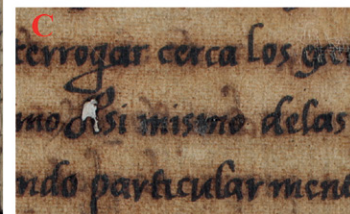 C
terrogar cerca los
mo si mismo delas
ndo particularmen